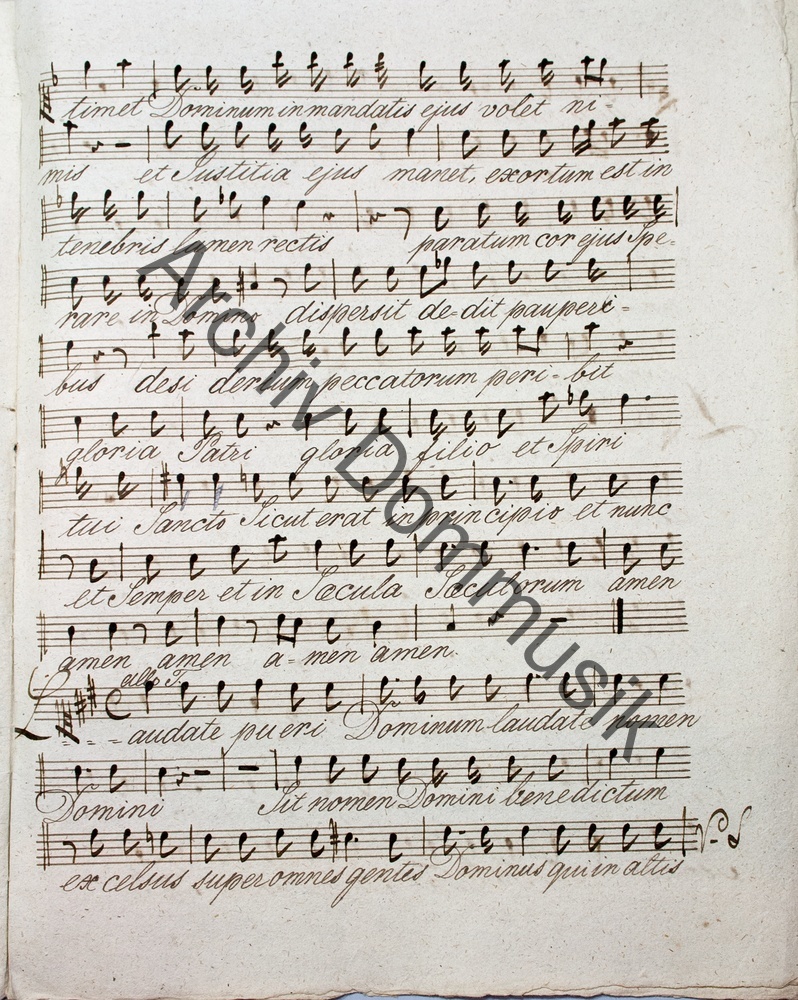 timet Dominum in mandatis ejus volet ni-
mis et Justitia ejus manet, exortum est in
tenebris lumen rectis paratum cor ejus Spe-
rare in Domino dispersit de-dit pauperi-
bus desi derium peccatorum peri-bit
gloria Patri gloria filio et Spiri
tui Sancto Sicut erat in principio et nunc
et Semper et in Sœcula Sœculorum amen
amen amen a-men amen.
allo
Laudate pueri Dominum laudate nomen
Domini Sit nomen Domini benedictum
excelsus super omnes gentes Dominus qui in altis
Archiv Dommusik